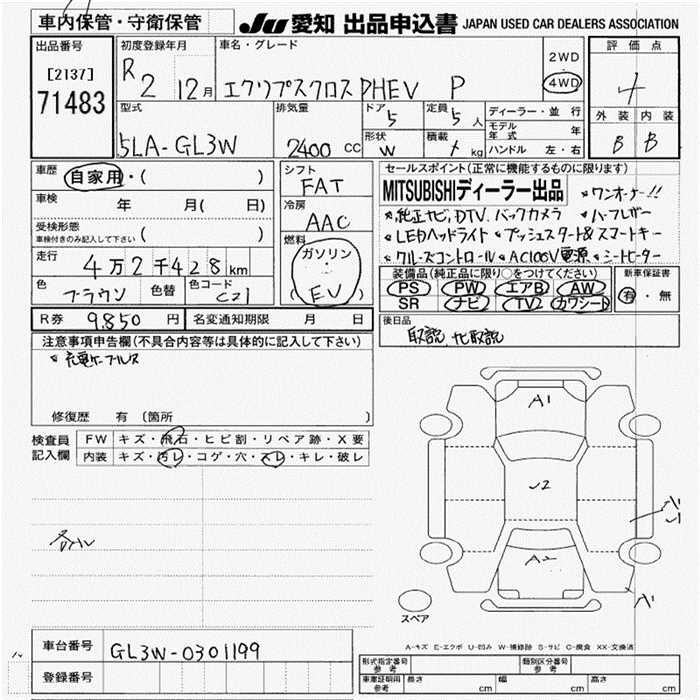 車内保管・守衛保管
JU 愛知 出品申込書 JAPAN USED CAR DEALERS ASSOCIATION
出品番号
[2137]
71483
初度登録年月
R2 12月
車名・グレード
エクリプスクロス PHEV P
2WD
4WD
評価点
4
外装 内装
B B
型式
5LA-GL3W
排気量
2400 cc
ドア
5
定員
5人
形状
W
積載
kg
ディーラー・並行
モデル年式 年
ハンドル 左・右
車歴
自家用・( )
車検
年 月( 日)
受検形態
車検付きのみ記入して下さい( )
走行
4万2千428km
色
ブラウン
色替
色コード
C21
シフト
FAT
冷房
AAC
燃料
ガソリン
(EV)
R券 9,850円
名変通知期限 月 日
セールスポイント(正常に機能するものに限ります)
MITSUBISHIディーラー出品 *ワンオーナー!!
*純正ナビ,DTV.バックカメラ *ハーフレザー
*LEDヘッドライト *プッシュスタート&スマートキー
*クルーズコントロール *AC100V電源 *シートヒーター
装備品(純正品に限り○をつけてください)
PS PW エアB AW
SR ナビ TV カワシート
新車保証書
有・無
後日品
取説 ナビ取説
注意事項申告欄(不具合内容等は具体的に記入して下さい)
*充電ケーブルス
修復歴 有 〔箇所
検査員記入欄
FW キズ・飛石・ヒビ割・リペア跡・X要
内装 キズ・汚レ・コゲ・穴・スレ・キレ・破レ
各ハレ
A1
J2
A2
A1
スペア
A-キズ E-エクボ U-凹み W-補修跡 S-サビ C-腐食 XX-交換済
車台番号
GL3W-0301199
登録番号
形式指定番号
参考
類別区分番号
参考
車庫証明用
参考
長さ cm
幅 cm
高さ cm